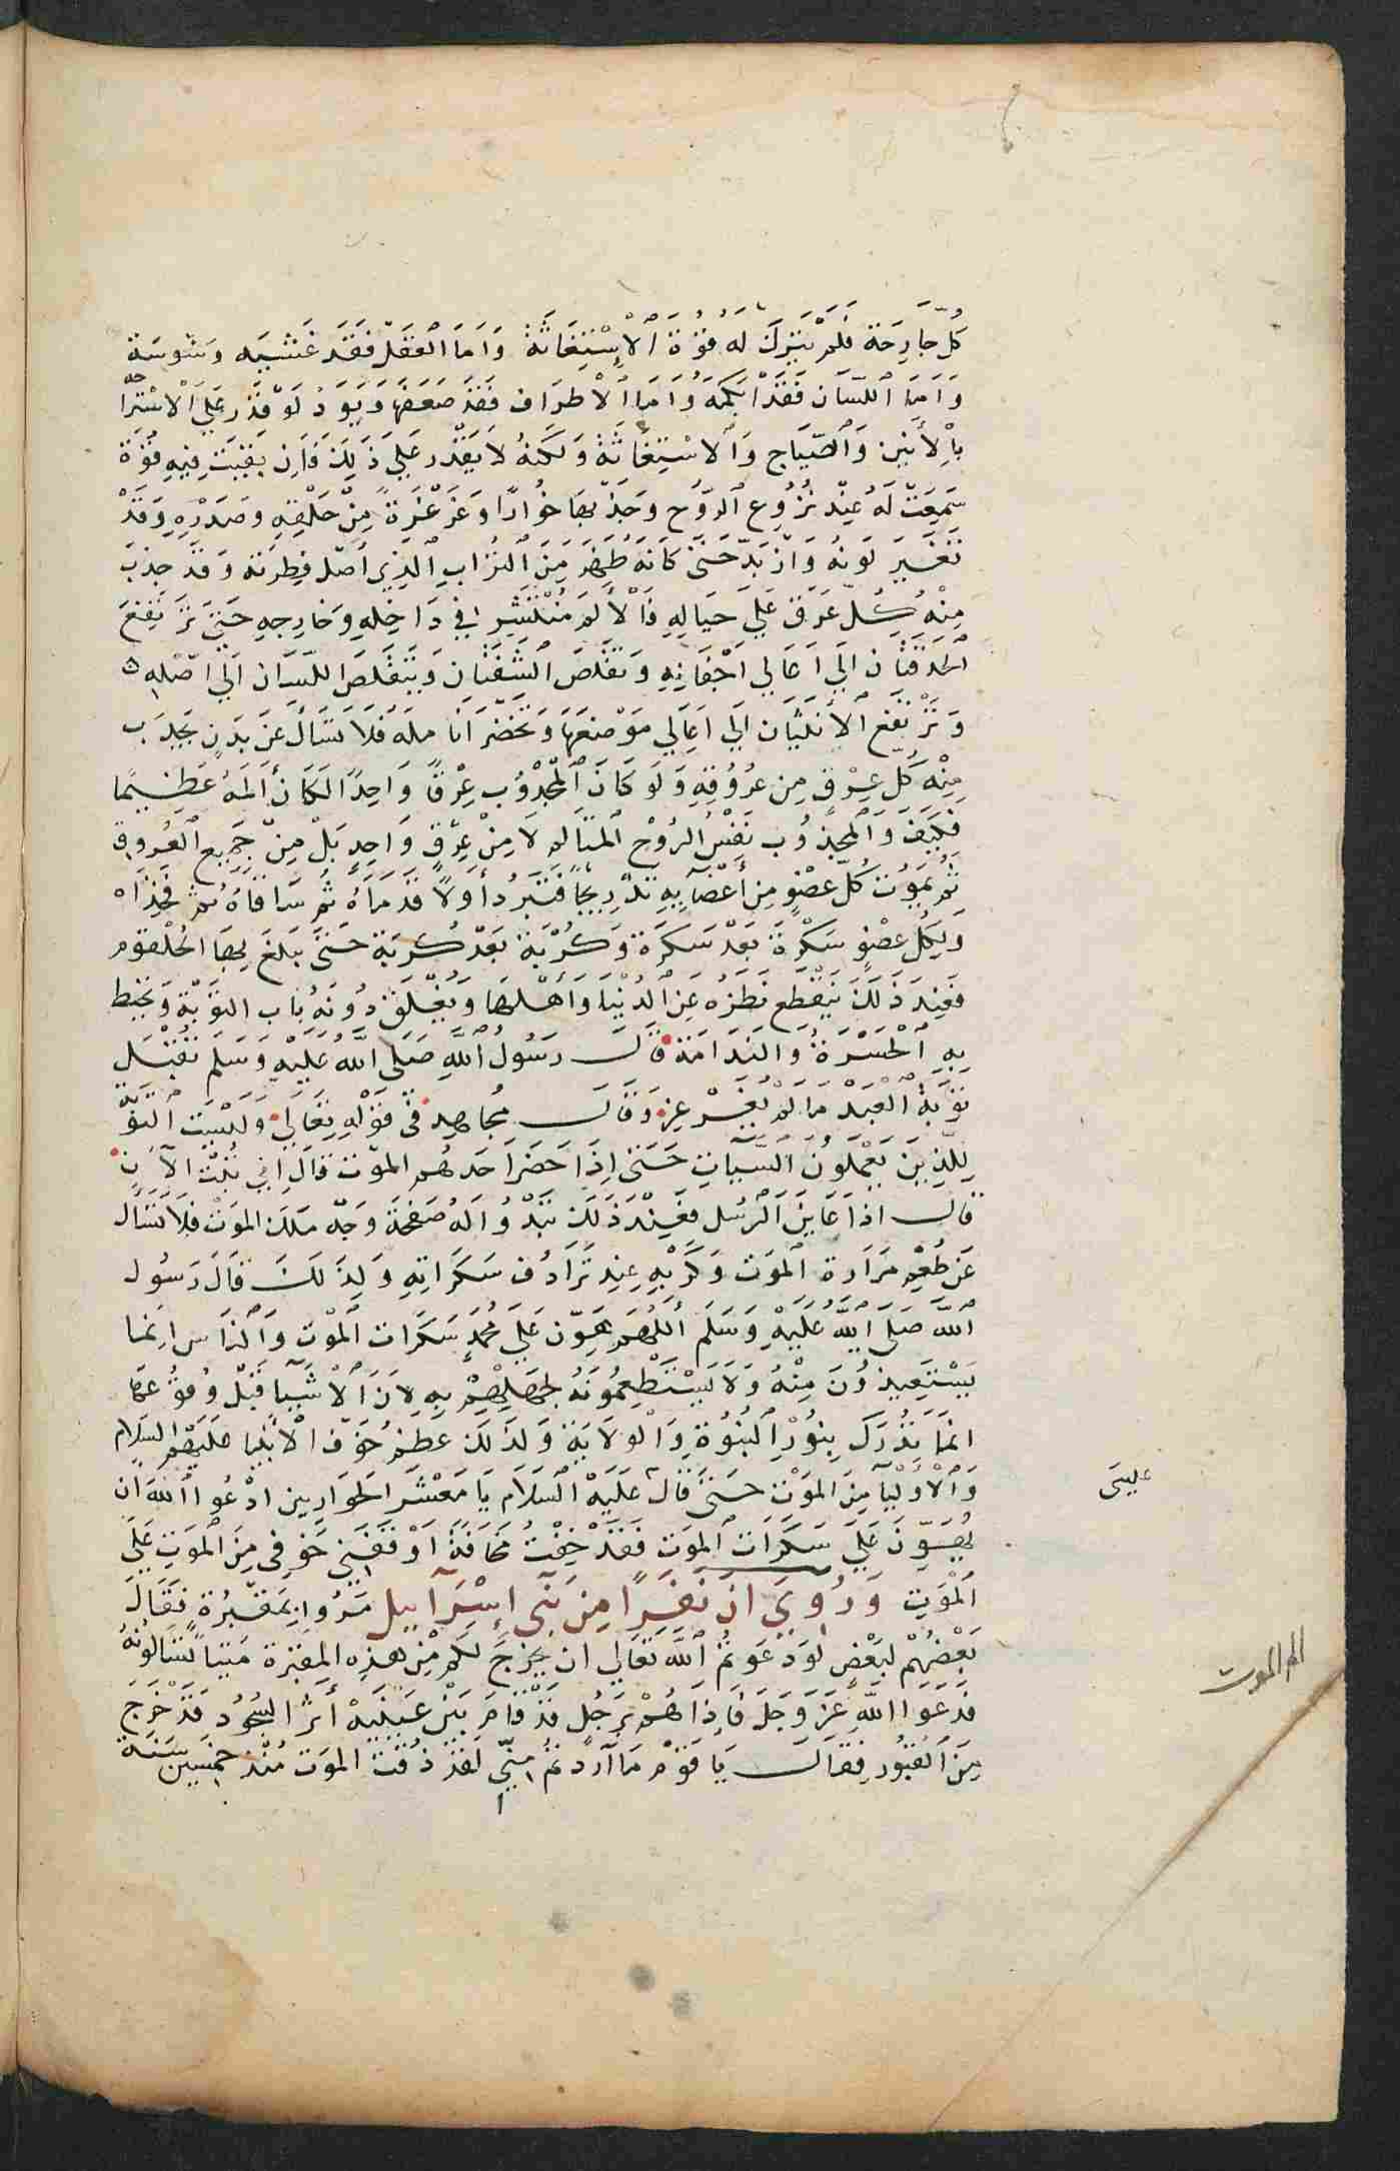 كل جارحة فلم يترك له قوة الاستغاثة واما العقل فقد غشيه وشوسة
واما اللسان فقد ابكمه واما الاطراف فقد ضعفها ويود لو قدر علي الاستراحة
بالأنين والصياح والاستغاثة ولكنه لا يقدر علي ذلك فان بقيت فيه قوة
سمعت له عند نزوع الروح وجذبها خوارا وغرغرة من حلقه وصدره وقد
تغير لونه وازبد حتى كانه ظهر من التراب الذي اصل فطرته وقد جذب
منه كل عرق علي حياله فالألم منتشر في داخله وخارجه حتى ترتفع
الحدقتان الي اعالي اجفانه وتقلص الشفتان ويتقلص اللسان الي اصله
وترتفع الأنثيان الي اعالي موضعها وتخضر انامله فلا تسأل عن بدن يجذب
منه كل عرق من عروقه ولو كان المجذوب عرقا واحدا لكان ألمه عظيما
فكيف والمجذوب نفس الروح المتألم لا من عرق واحد بل من جميع العروق
ثم يموت كل عضو من أعضآيه تدريجا فتبرد أولا قدماه ثم ساقاه ثم فخذاه
ولكل عضو سكرة بعد سكرة وكربة بعد كربة حتى يبلغ بها الحلقوم
فعند ذلك ينقطع نظره عن الدنيا وأهلها ويغلق دونه باب التوبة وتحيط
به الحسرة والندامة قال رسول الله صلى الله عليه وسلم تقبل
توبة العبد ما لم يغرغر وقال مجاهد في قوله تعالي وليست التوبة
للذين يعملون السيات حتى إذا حضر احدهم الموت قال اني تبت الآن
قال اذا عاين الرسل فعند ذلك تبدوا له صفحة وجه ملك الموت فلا تسأل
عن طعم مرارة الموت وكربه عند ترادف سكراته ولذلك قال رسول
الله صلى الله عليه وسلم اللهم هون علي محمد سكرات الموت والناس انما
يستعيذون منه ولا يستطعمونه لجهلهم به لان الاشيا قبل وقوعها
انما تدرك بنور النبوة والولاية ولذلك عظم خوف الأنبيا عليهم السلام
والأوليا من الموت حتى قال عليه السلام يا معشر الحواريين ادعوا الله ان
عيسى
يهون علي سكرات الموت فقد خفت مخافة اوقفني خوفي من الموت علي
الموت وروي ان نفرا من بني إسرآييل مروا بمقبرة فقال
بعضهم لبعض لو دعوتم الله تعالي ان يخرج لكم من هذه المقبرة ميتا تسالونه
الم الموت
فدعوا الله عز وجل فاذا هم برجل قد قام بين عينيه أثر السجود قد خرج
من القبور فقال يا قوم ما آردتم مني لقد ذقت الموت منذ خمسين سنة